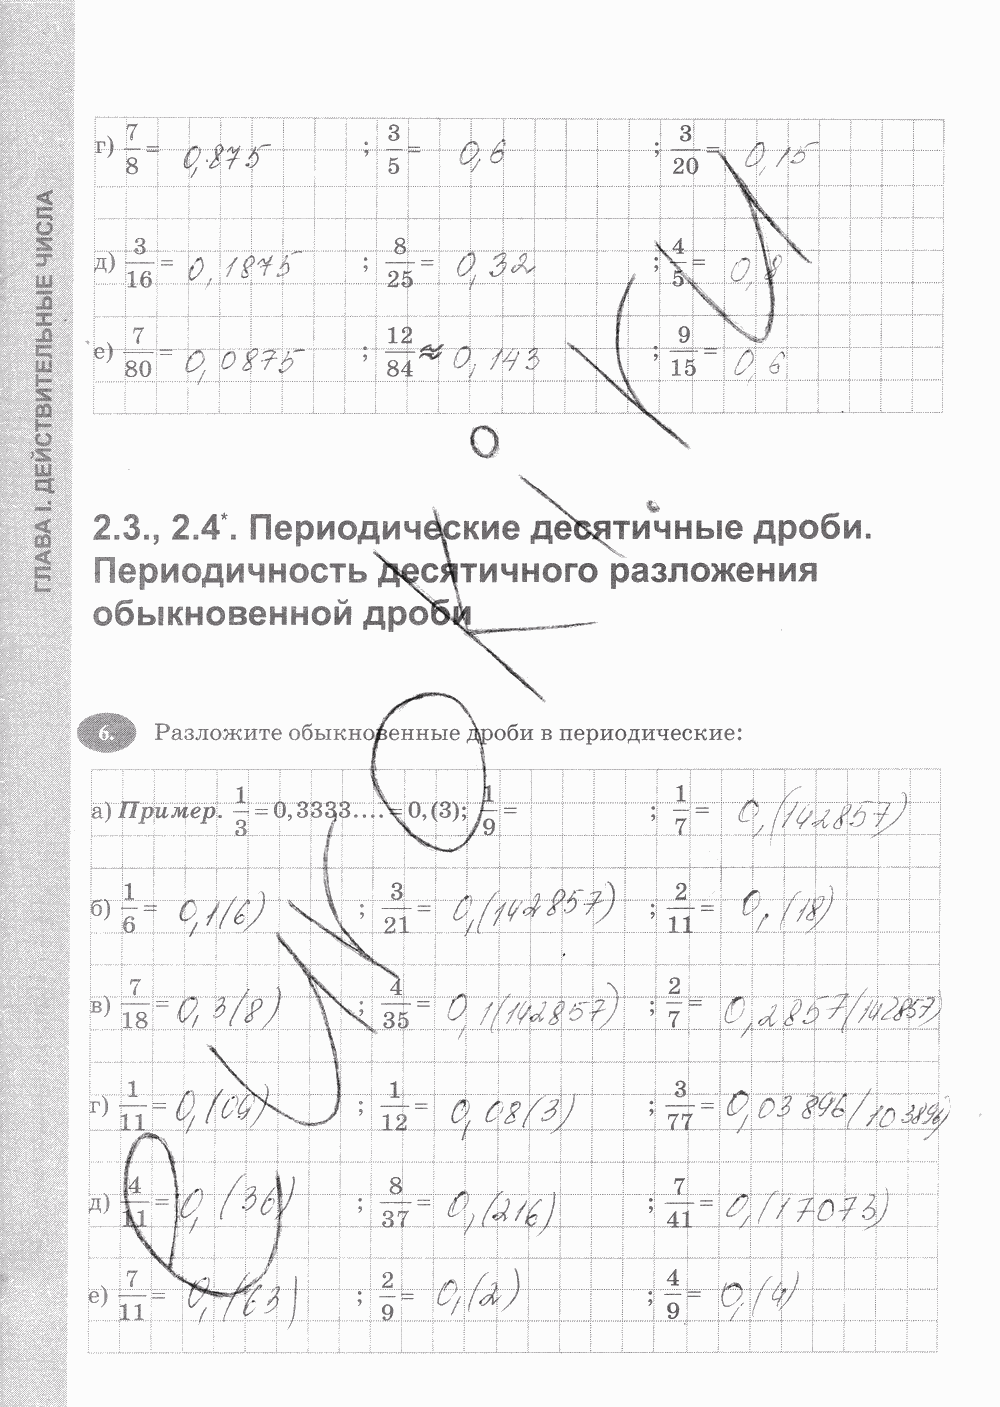 ГЛАВА I. ДЕЙСТВИТЕЛЬНЫЕ ЧИСЛА
г) 7/8 = 0,875 ; 3/5 = 0,6 ; 3/20 = 0,15
д) 3/16 = 0,1875 ; 8/25 = 0,32 ; 4/5 = 0,8
е) 7/80 = 0,0875 ; 12/84 ≈ 0,143 ; 9/15 = 0,6
2.3., 2.4*. Периодические десятичные дроби.
Периодичность десятичного разложения
обыкновенной дроби
6. Разложите обыкновенные дроби в периодические:
а) Пример. 1/3 = 0,3333.... = 0,(3); 1/9 = ; 1/7 = 0,(142857)
б) 1/6 = 0,1(6) ; 3/21 = 0,(142857) ; 2/11 = 0,(18)
в) 7/18 = 0,3(8) ; 4/35 = 0,1(142857) ; 2/7 = 0,2857(142857)
г) 1/11 = 0,(09) ; 1/12 = 0,08(3) ; 3/77 = 0,03896(103896)
д) 4/11 = 0,(36) ; 8/37 = 0,(216) ; 7/41 = 0,(17073)
е) 7/11 = 0,(63) ; 2/9 = 0,(2) ; 4/9 = 0,(4)